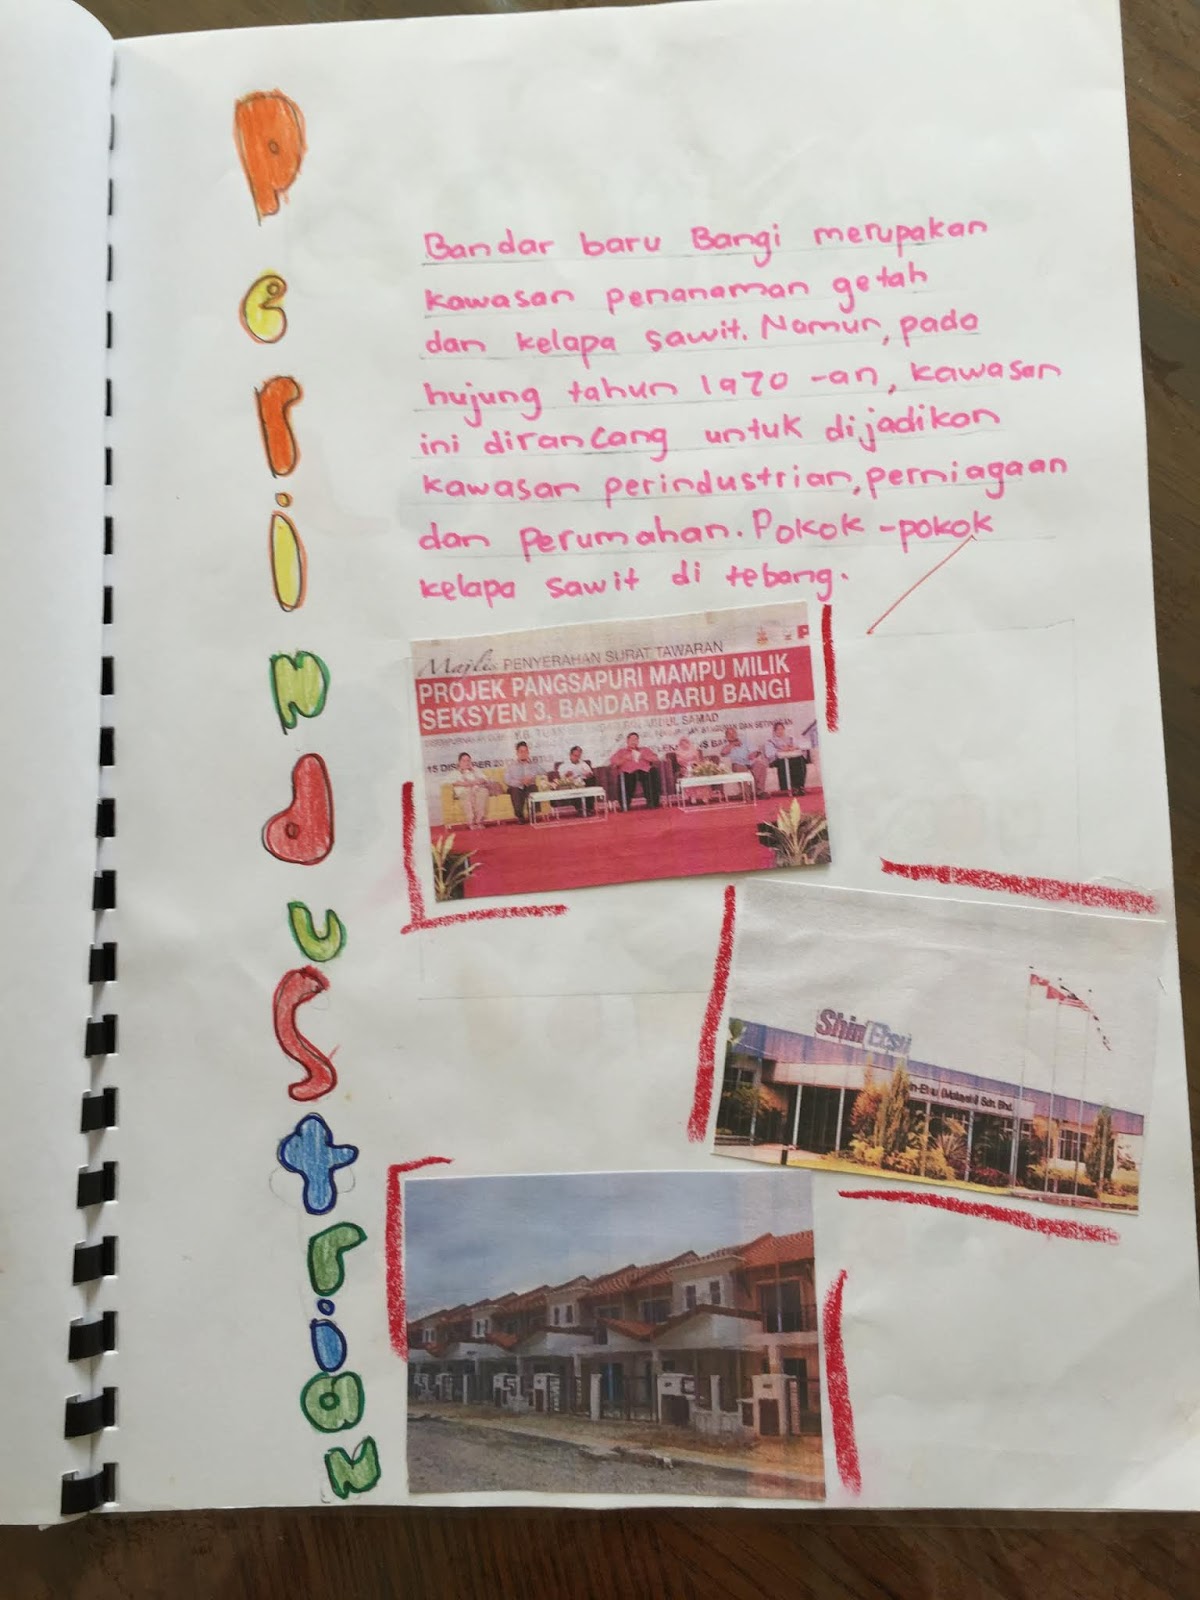 Perindustrian
Bandar baru Bangi merupakan
kawasan penanaman getah
dan kelapa sawit. Namun, pada
hujung tahun 1970 -an, kawasan
ini dirancang untuk dijadikan
kawasan perindustrian, perniagaan
dan perumahan. Pokok -pokok
kelapa sawit di tebang.
Majlis PENYERAHAN SURAT TAWARAN
PROJEK PANGSAPURI MAMPU MILIK
SEKSYEN 3, BANDAR BARU BANGI
Shin Etsu
(Malaysia) Sdn. Bhd.